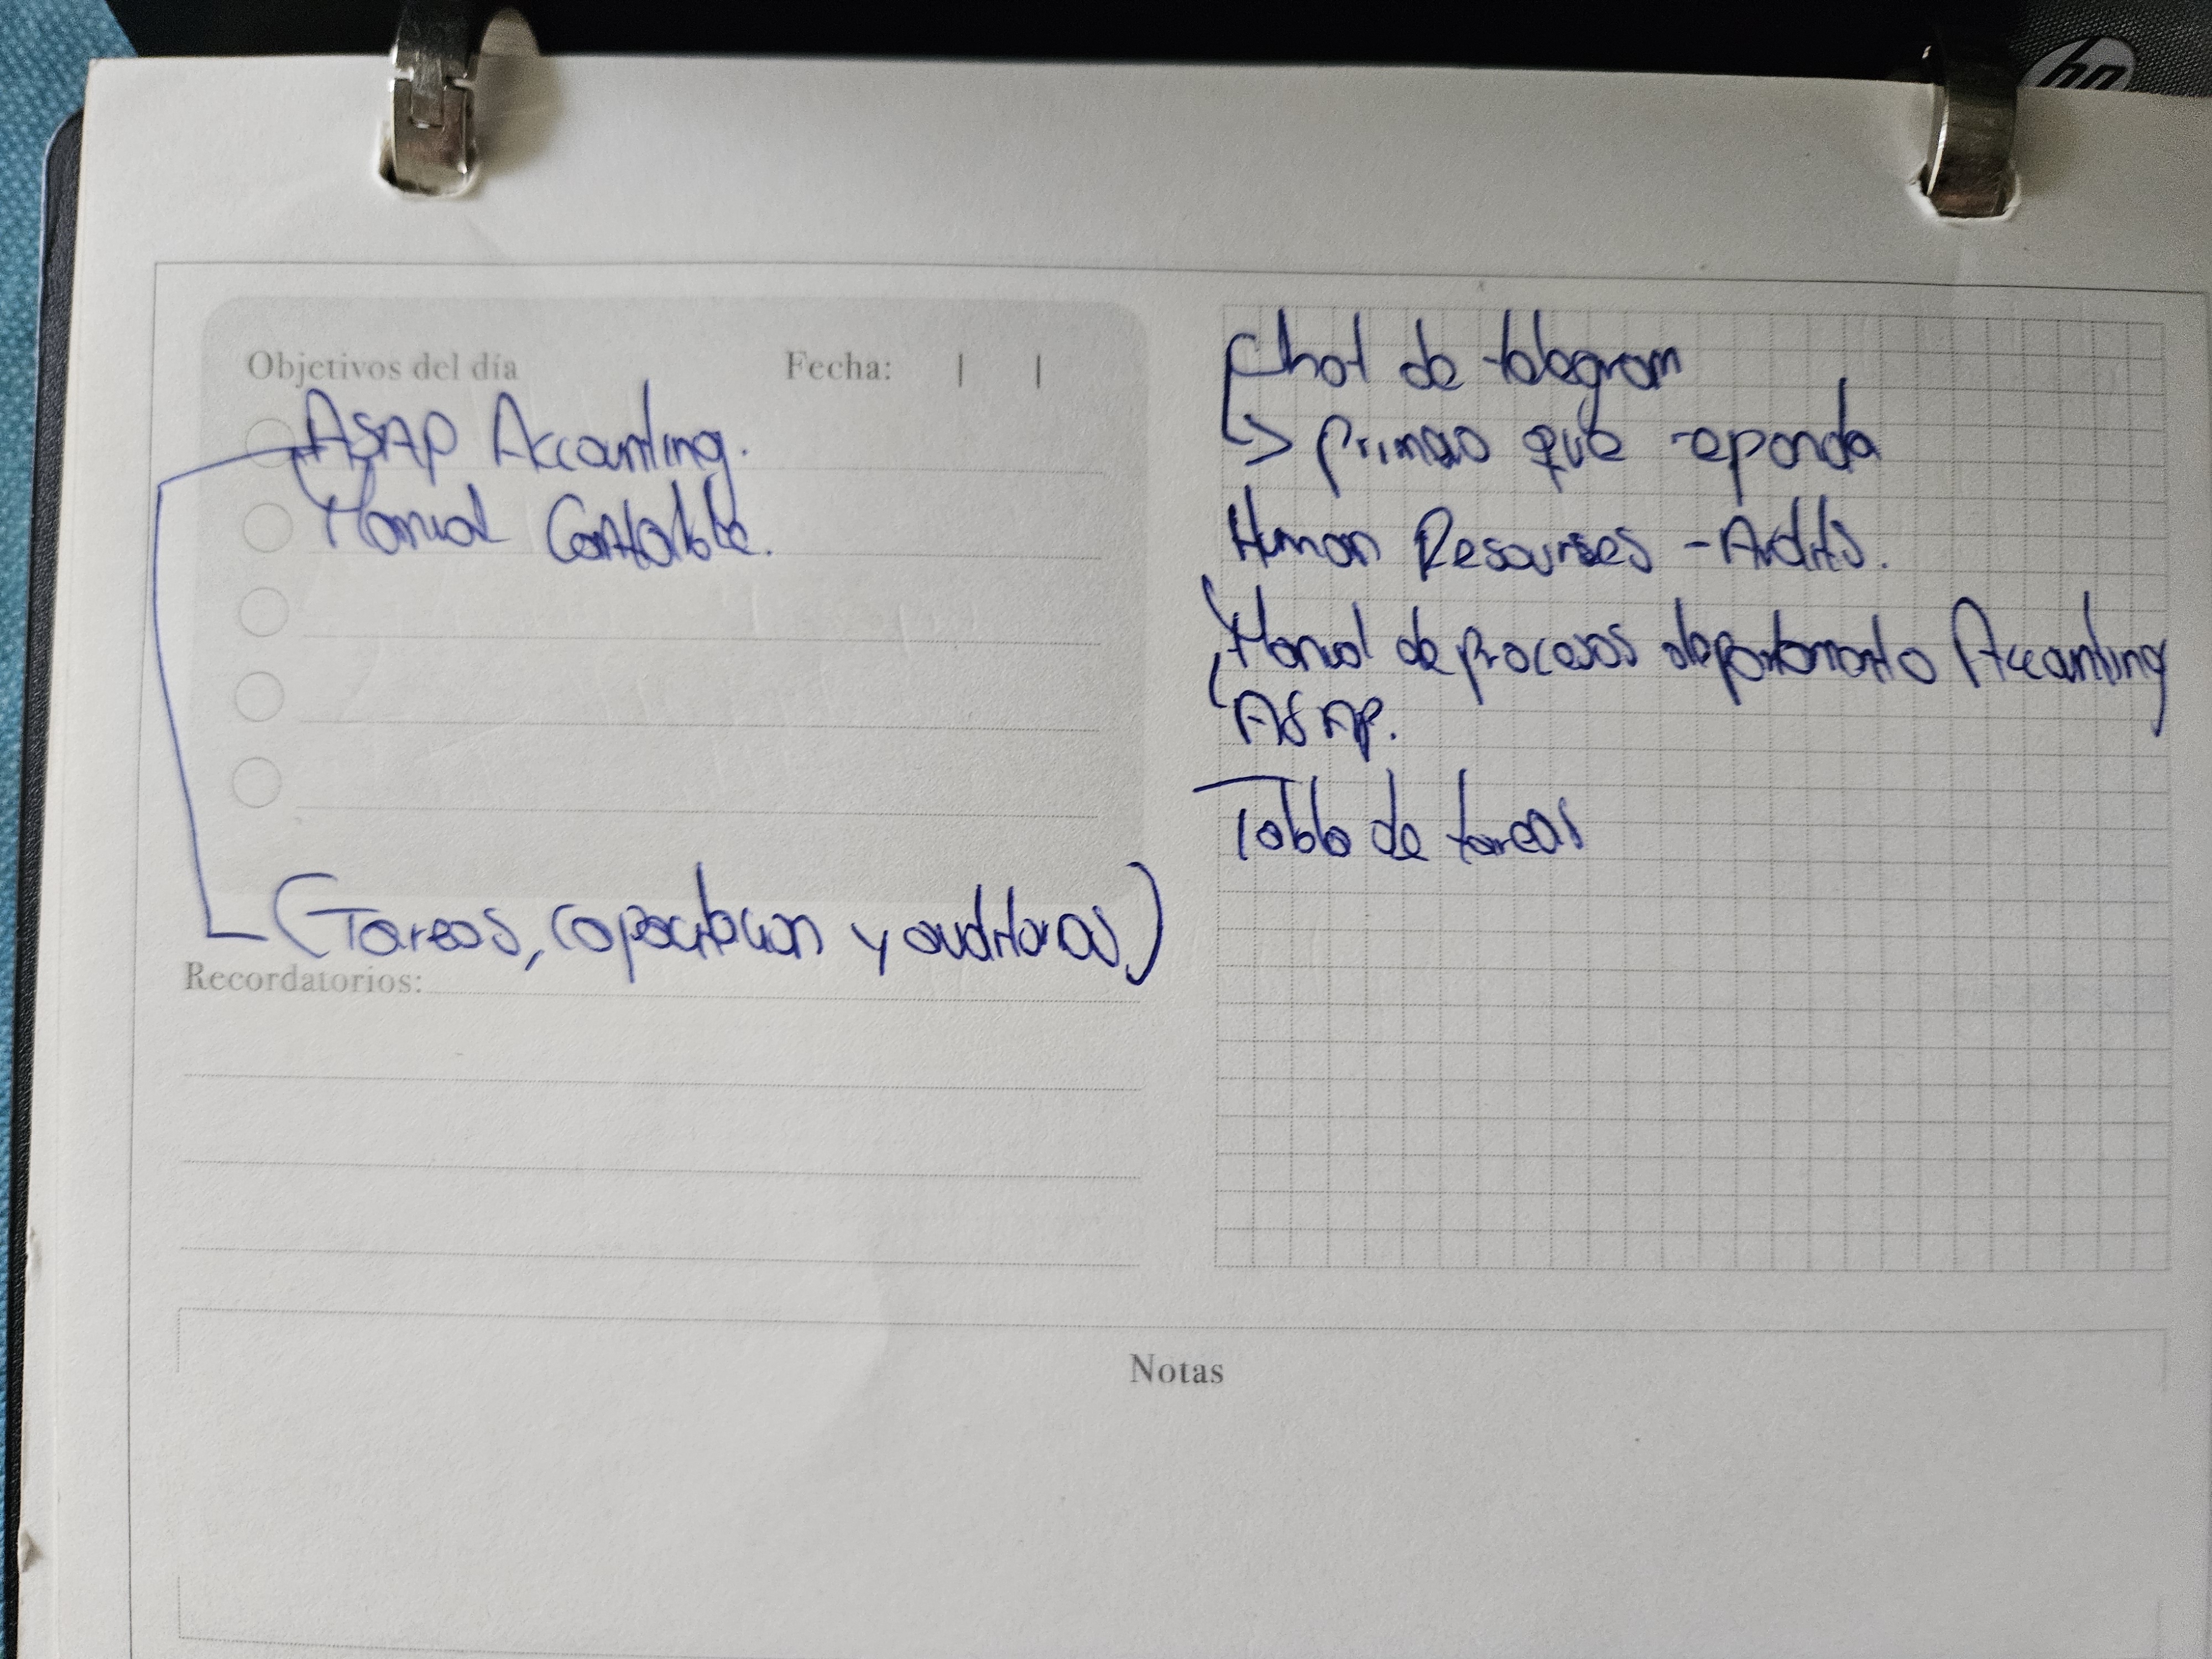 hp
Objetivos del día Fecha: | |
ASAP Accounting.
Manual Contable.
(Tareas, capacitacion y auditorias)
Recordatorios:
Chat de telegram
→ primero que reponda
Human Resourses - Audits.
Manual de procesos departamento Accounting
ASAP.
Tabla de tareas
Notas